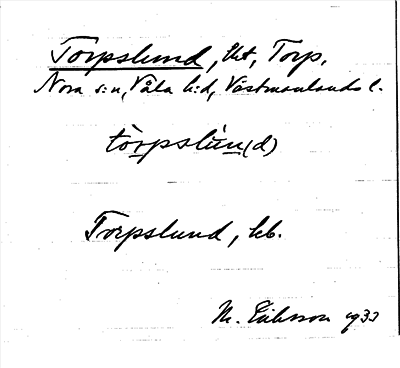 Torpslund, lht, Torp,
Nora s:n, Våla h:d, Västmanlands l.
tòrpslùn(d)
Torpslund, lb.
M. Eriksson 1933